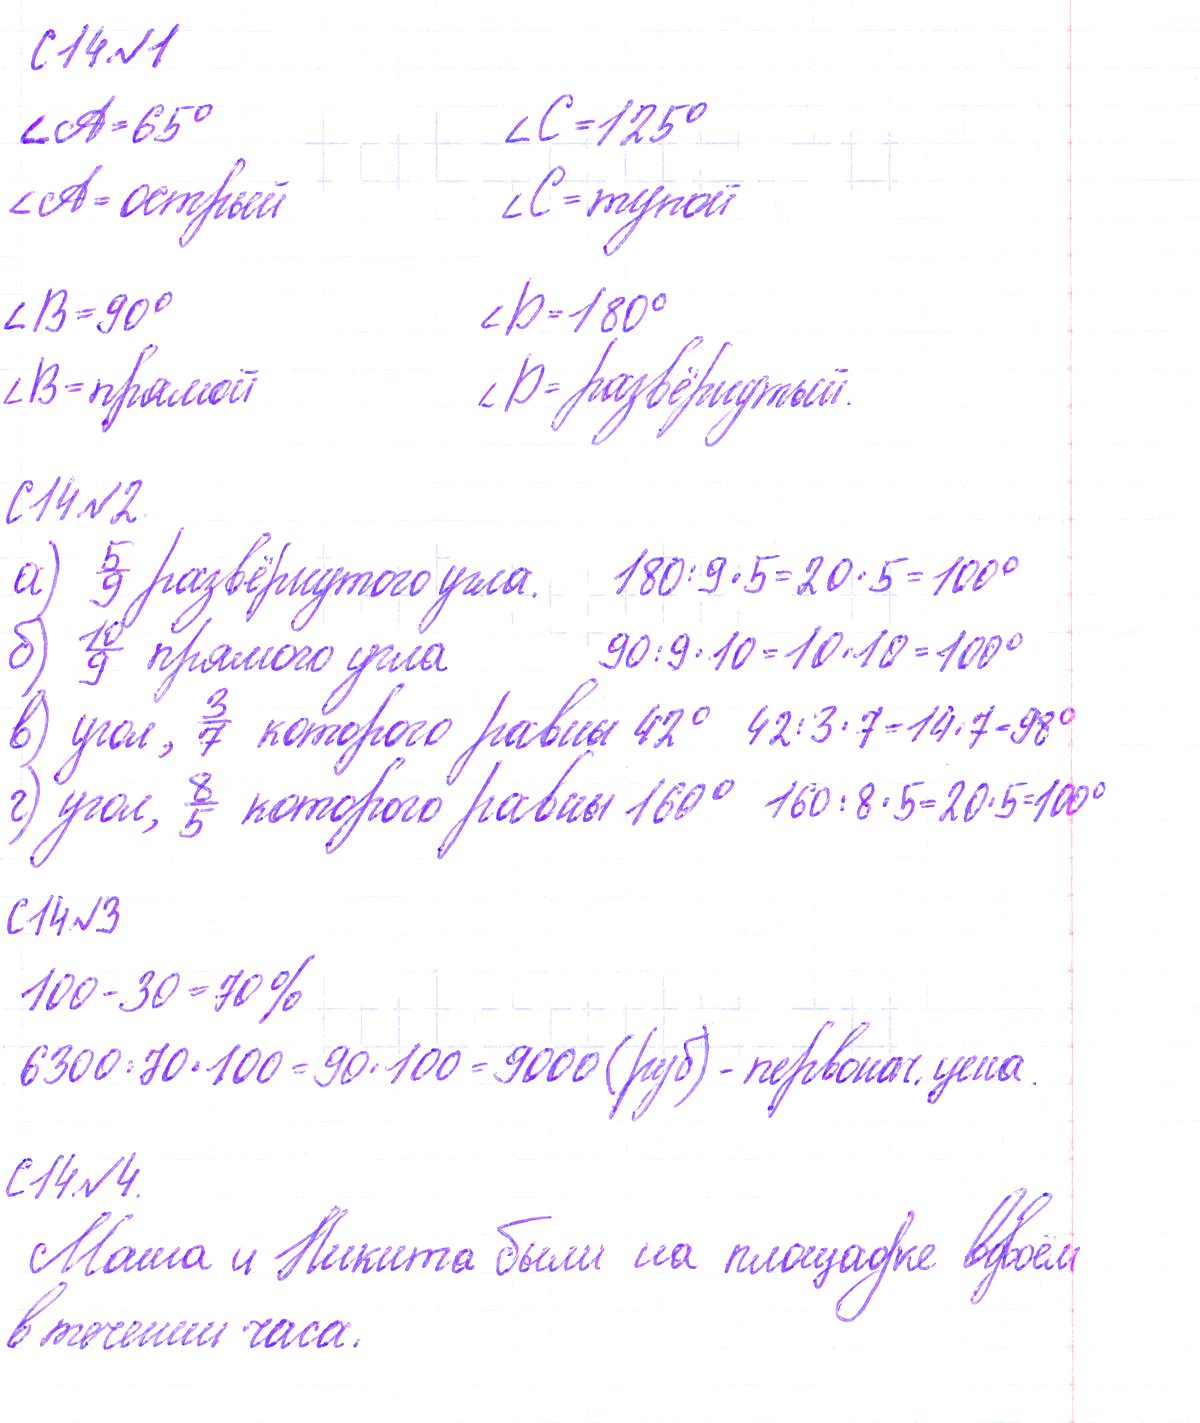 С14 №1
∠A = 65° ∠C = 125°
∠A = острый ∠C = тупой
∠B = 90° ∠D = 180°
∠B = прямой ∠D = развёрнутый.
С14 №2.
а) 5/9 развёрнутого угла. 180 : 9 · 5 = 20 · 5 = 100°
б) 10/9 прямого угла 90 : 9 · 10 = 10 · 10 = 100°
в) угол, 3/7 которого равны 42° 42 : 3 · 7 = 14 · 7 = 98°
г) угол, 8/5 которого равны 160° 160 : 8 · 5 = 20 · 5 = 100°
С14 №3
100 - 30 = 70%
6300 : 70 · 100 = 90 · 100 = 9000 (руб) - первонач. цена.
С14 №4.
Маша и Никита были на площадке вдвоём
в течении часа.